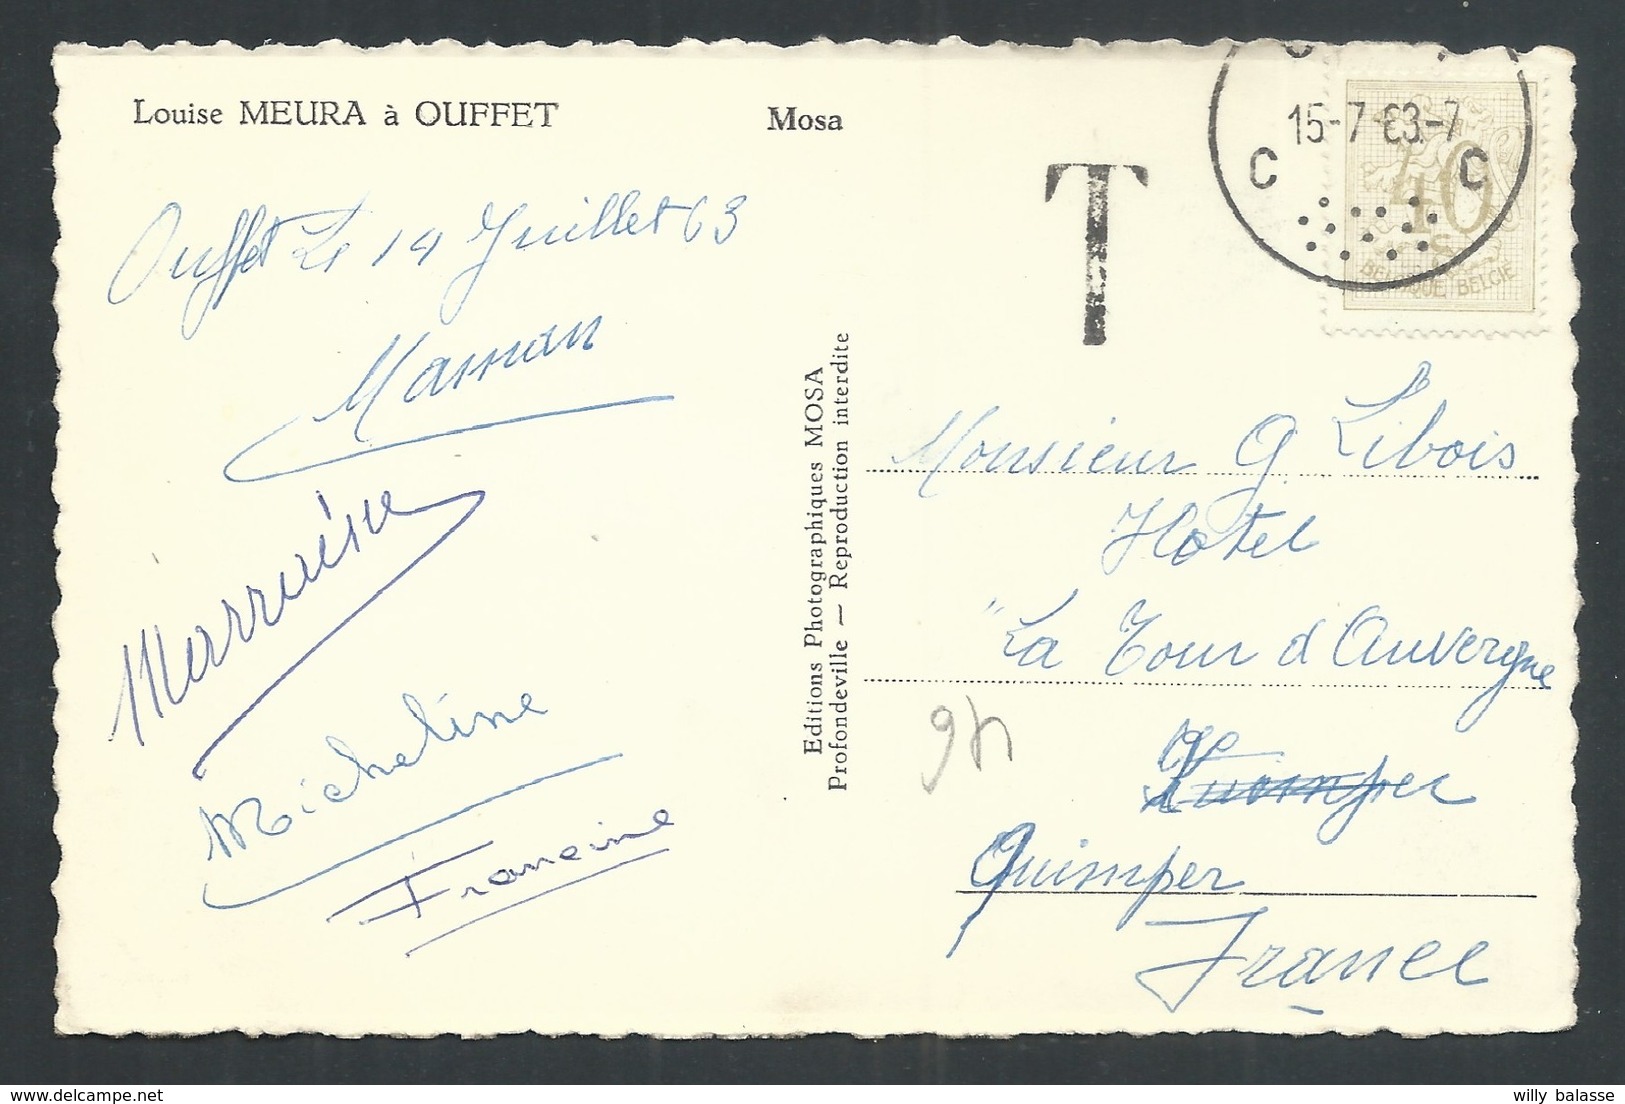 Louise MEURA à OUFFET
Mosa
Ouffet Le 14 Juillet 63
Maman
Micheline
Francine
Editions Photographiques MOSA
Profondeville — Reproduction interdite
T
15-7 63-7
C C
40
BELGIQUE BELGIË
Monsieur G Libois
Hotel
"La Tour d'Auvergne
Quimper
France
willy balasse